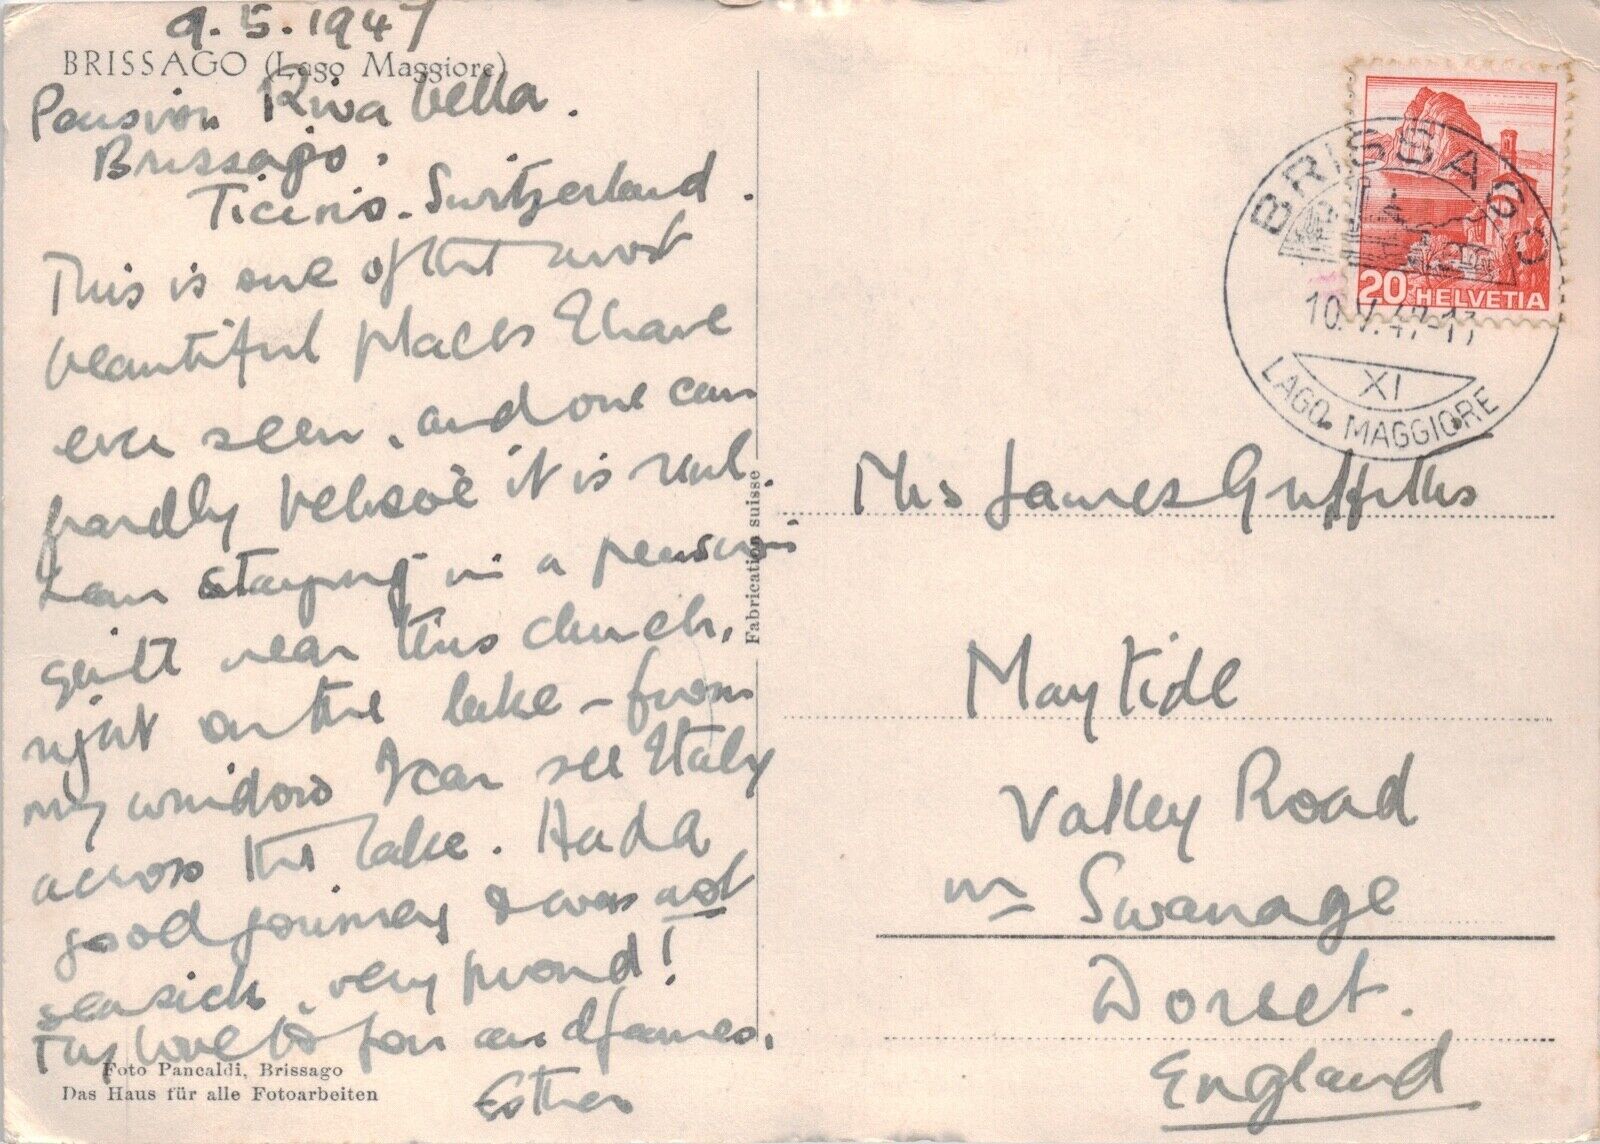 9.5.1947
BRISSAGO (Lago Maggiore)
Pension Riva bella.
Brissago,
Ticino. Switzerland.
This is one of the most
beautiful places I have
ever seen, and one can
hardly believe it is real.
I am staying in a pension
quite near this church,
right on the lake – from
my window I can see Italy
across the lake. Had a
good journey & was not
seasick, very proud!
My love to you and James,
Esther
Foto Pancaldi, Brissago
Das Haus für alle Fotoarbeiten
Fabrication suisse
20 HELVETIA
BRISSAGO
10.V.47-13
XI
LAGO MAGGIORE
Mrs James Griffiths
Maytide
Valley Road
nr Swanage
Dorset.
England